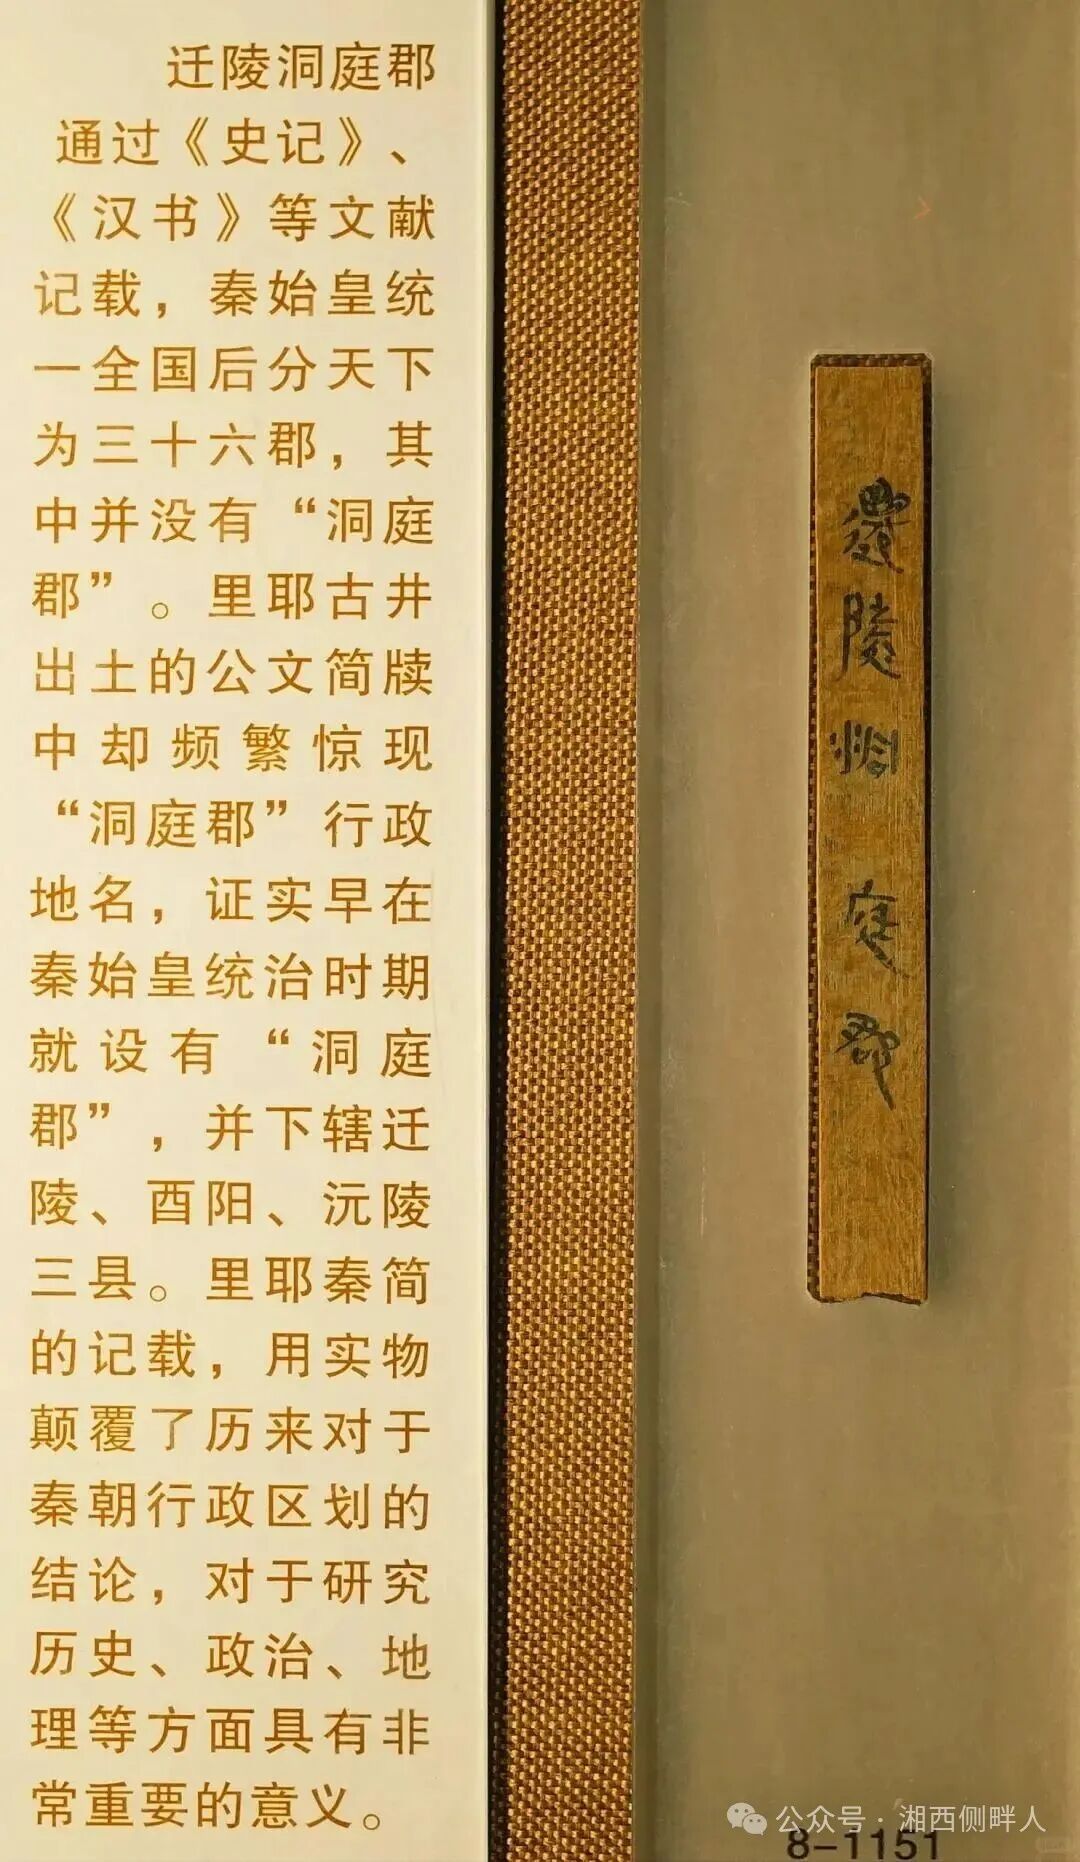 迁陵洞庭郡
通过《史记》、
《汉书》等文献
记载，秦始皇统
一全国后分天下
为三十六郡，其
中并没有“洞庭
郡”。里耶古井
出土的公文简牍
中却频繁惊现
“洞庭郡”行政
地名，证实早在
秦始皇统治时期
就设有“洞庭
郡”，并下辖迁
陵、酉阳、沅陵
三县。里耶秦简
的记载，用实物
颠覆了历来对于
秦朝行政区划的
结论，对于研究
历史、政治、地
理等方面具有非
常重要的意义。
遷陵洞庭郡
公众号·湘西侧畔人
8-1151